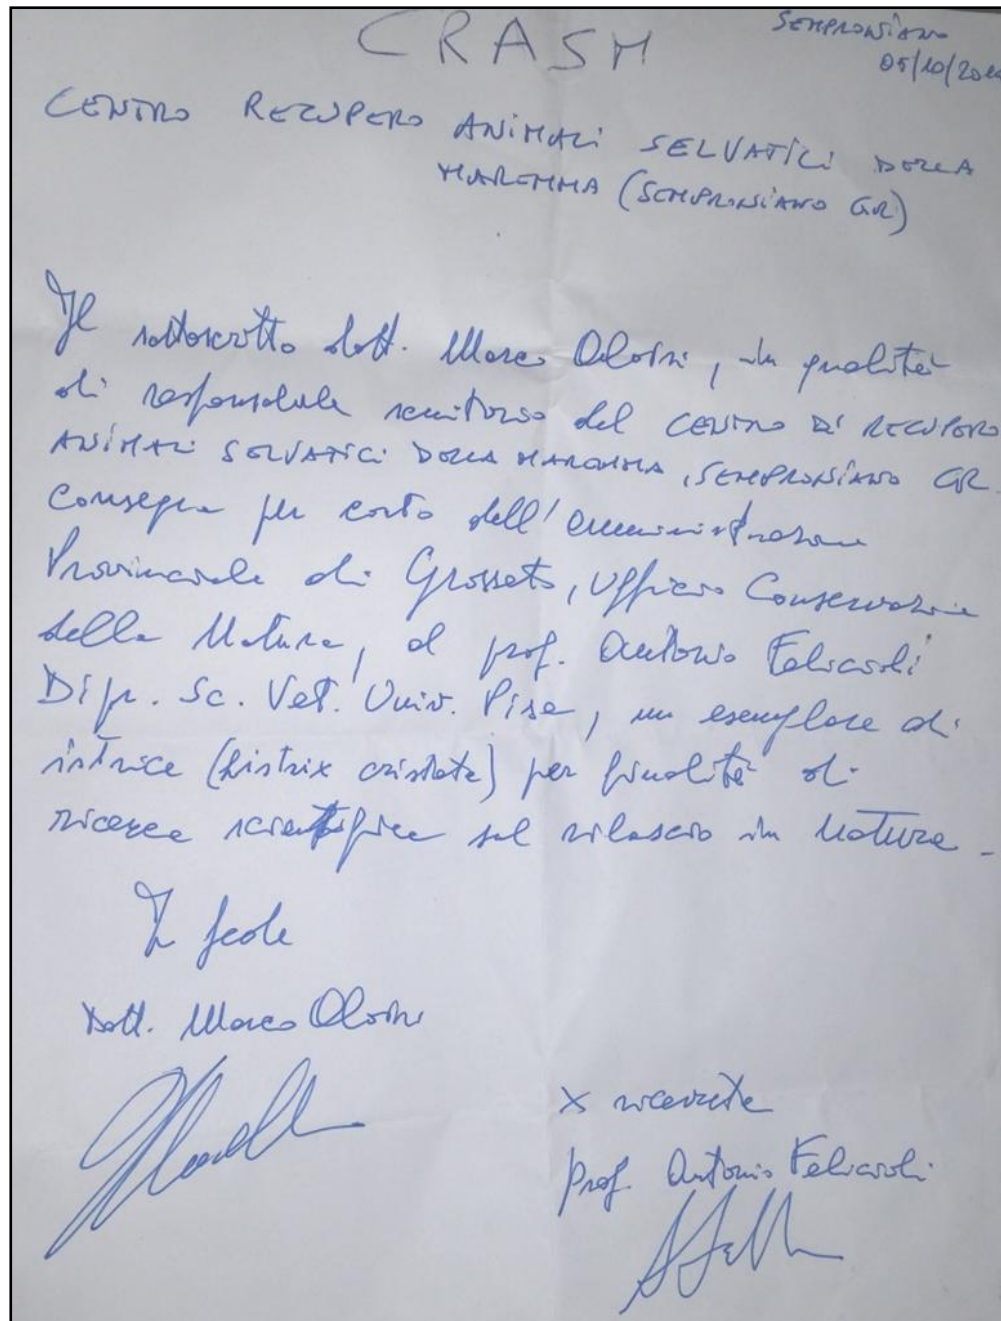 CRASM
SEMPRONIANO
05/10/201
CENTRO RECUPERO ANIMALI SELVATICI DELLA
MAREMMA (SEMPRONIANO GR)
Il sottoscritto dott. Marco Aloisi, in qualità
di responsabile sanitario del CENTRO DI RECUPERO
ANIMALI SELVATICI DELLA MAREMMA, SEMPRONIANO GR
consegna per conto dell'amministrazione
Provinciale di Grosseto, Ufficio Conservazione
della Natura, al prof. Antonio Felicioli
Dip. Sc. Vet. Univ. Pisa, un esemplare di
istrice (histrix cristata) per finalità di
ricerca scientifica sul rilascio in Natura -
In fede
Dott. Marco Aloisi
X ricevuta
Prof. Antonio Felicioli